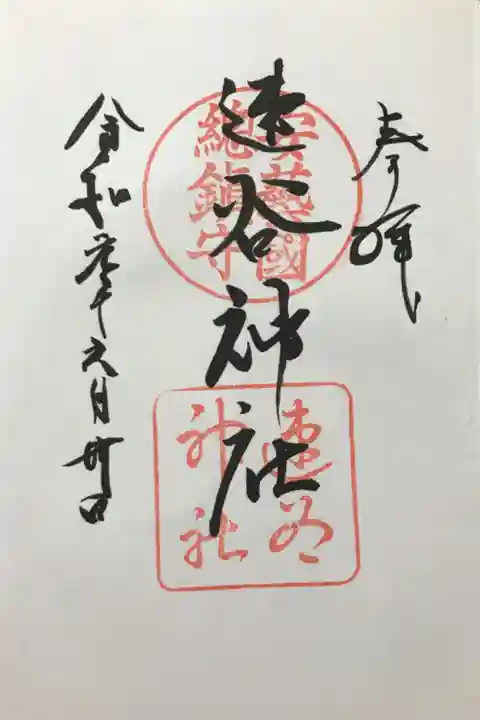 奉拝
安藝國
總鎮守
速谷神社
速谷
神社
令和元年六月卅日